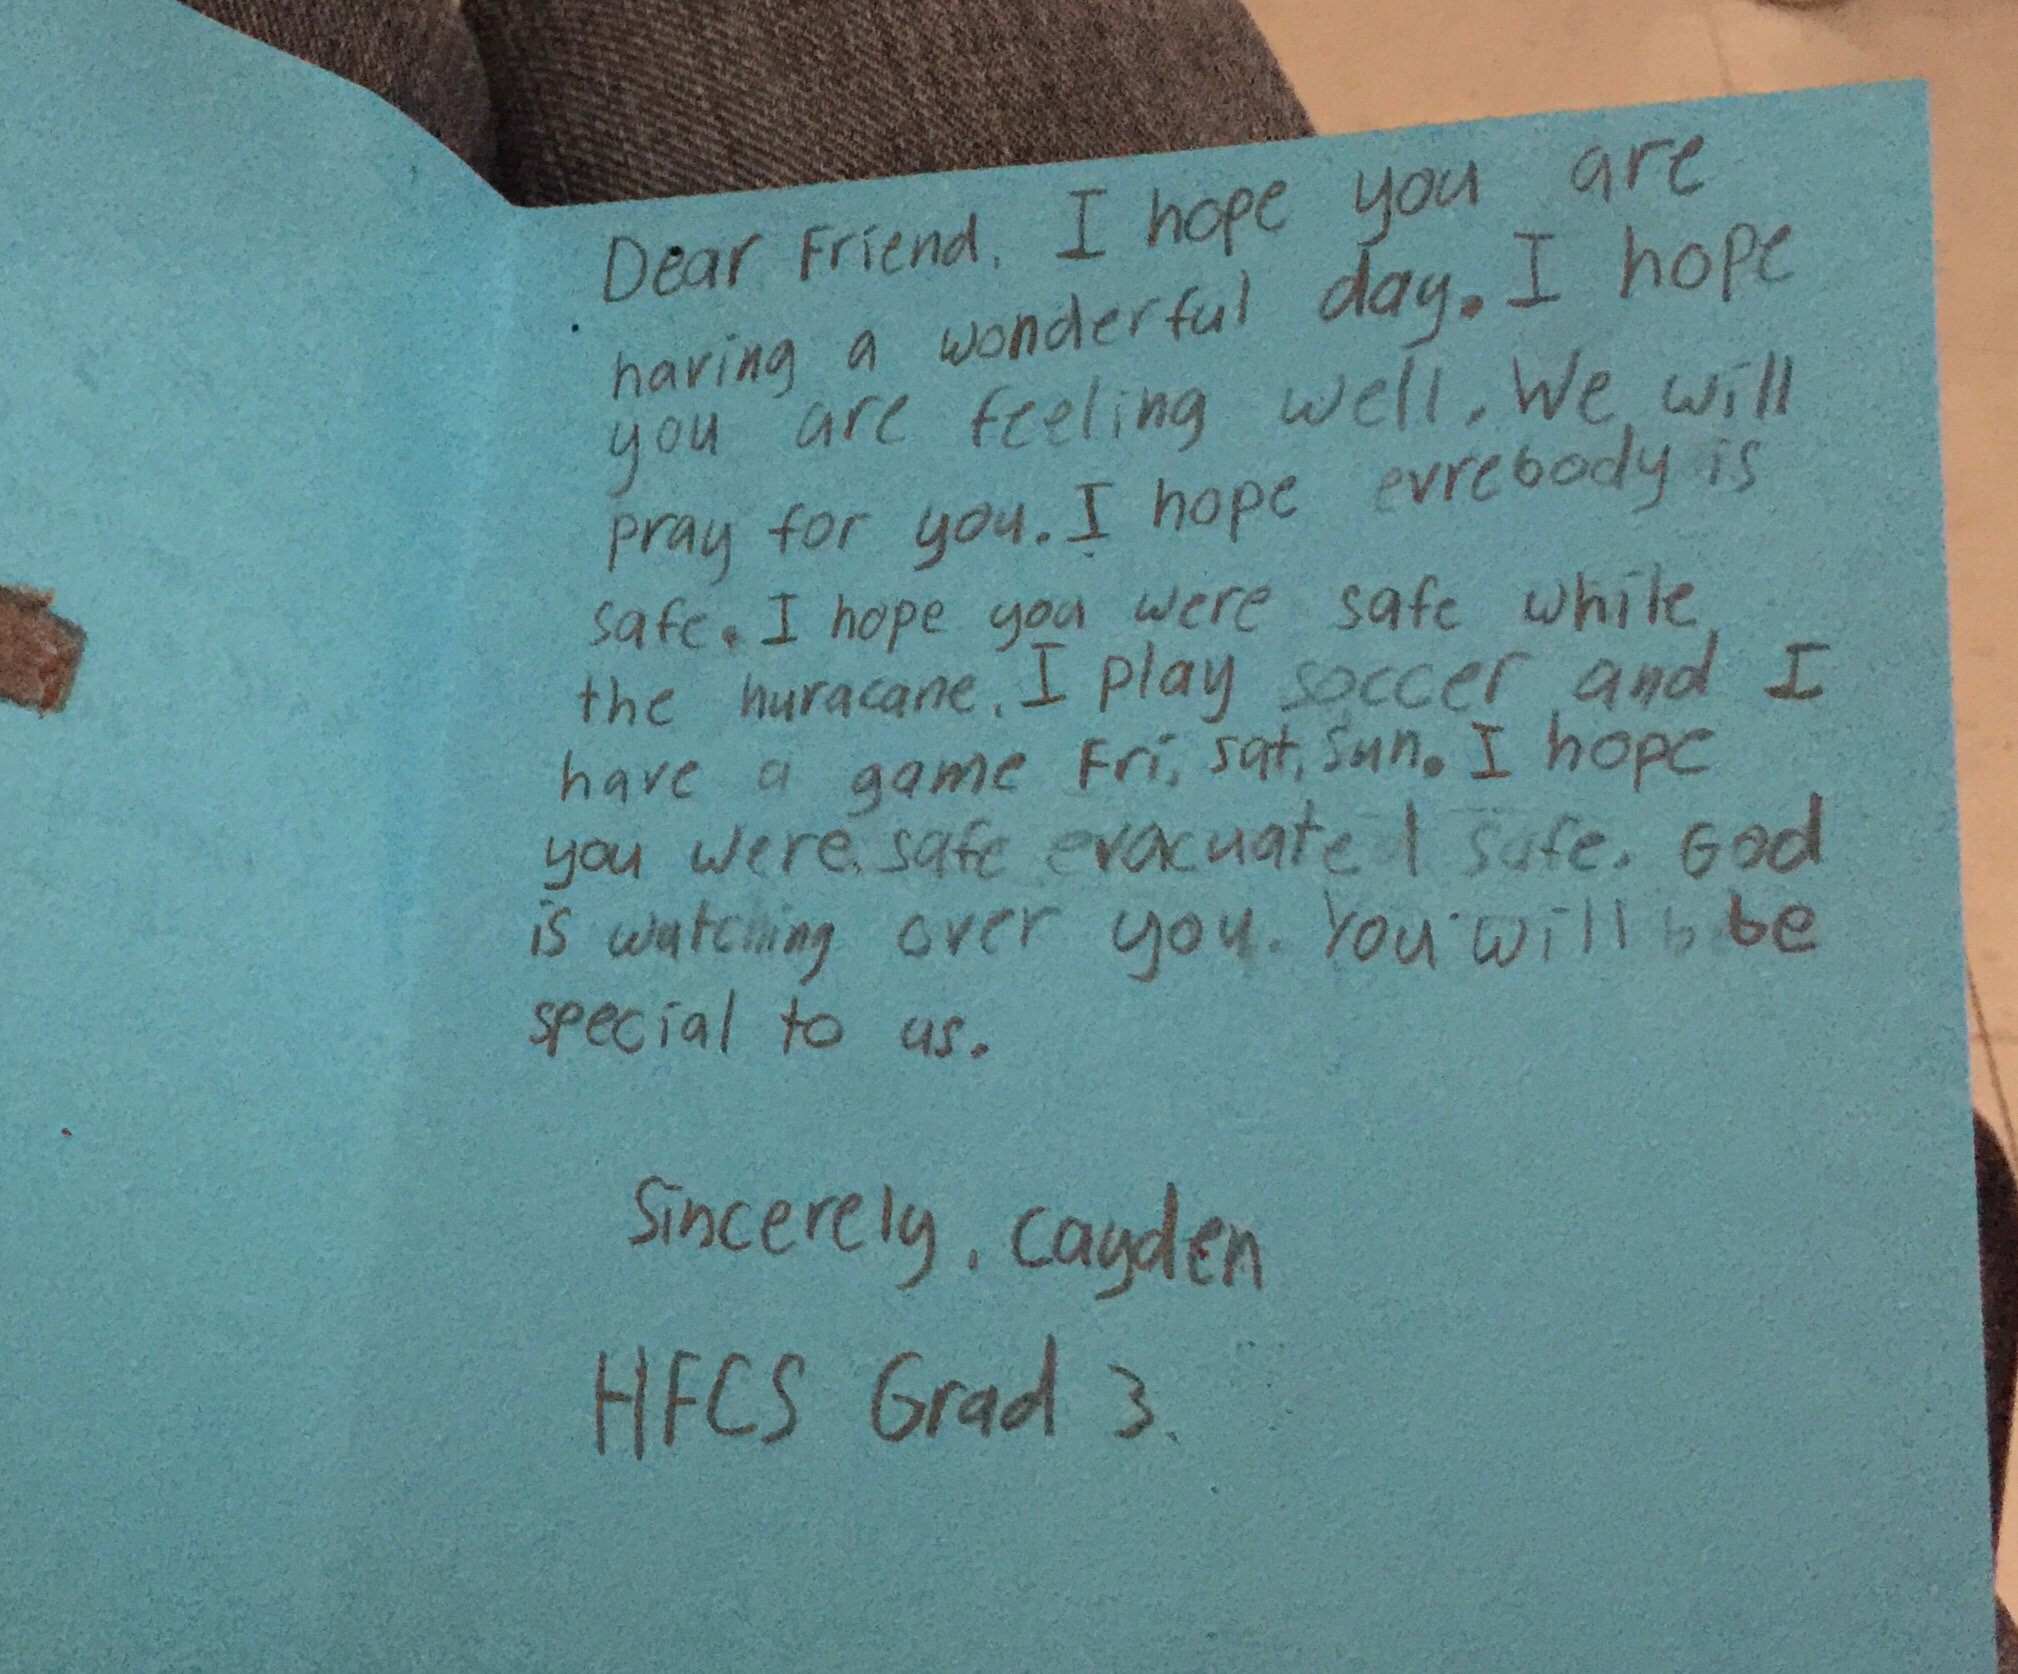 Dear Friend. I hope you are
having a wonderful day. I hope
you are feeling well. We will
pray for you. I hope evrebody is
safe. I hope you were safe while
the huracane. I play soccer and I
have a game Fri, Sat, Sun. I hope
you were safe evacuated safe. God
is watching over you. You will be
special to us.
Sincerely, Cayden
HFCS Grad 3.